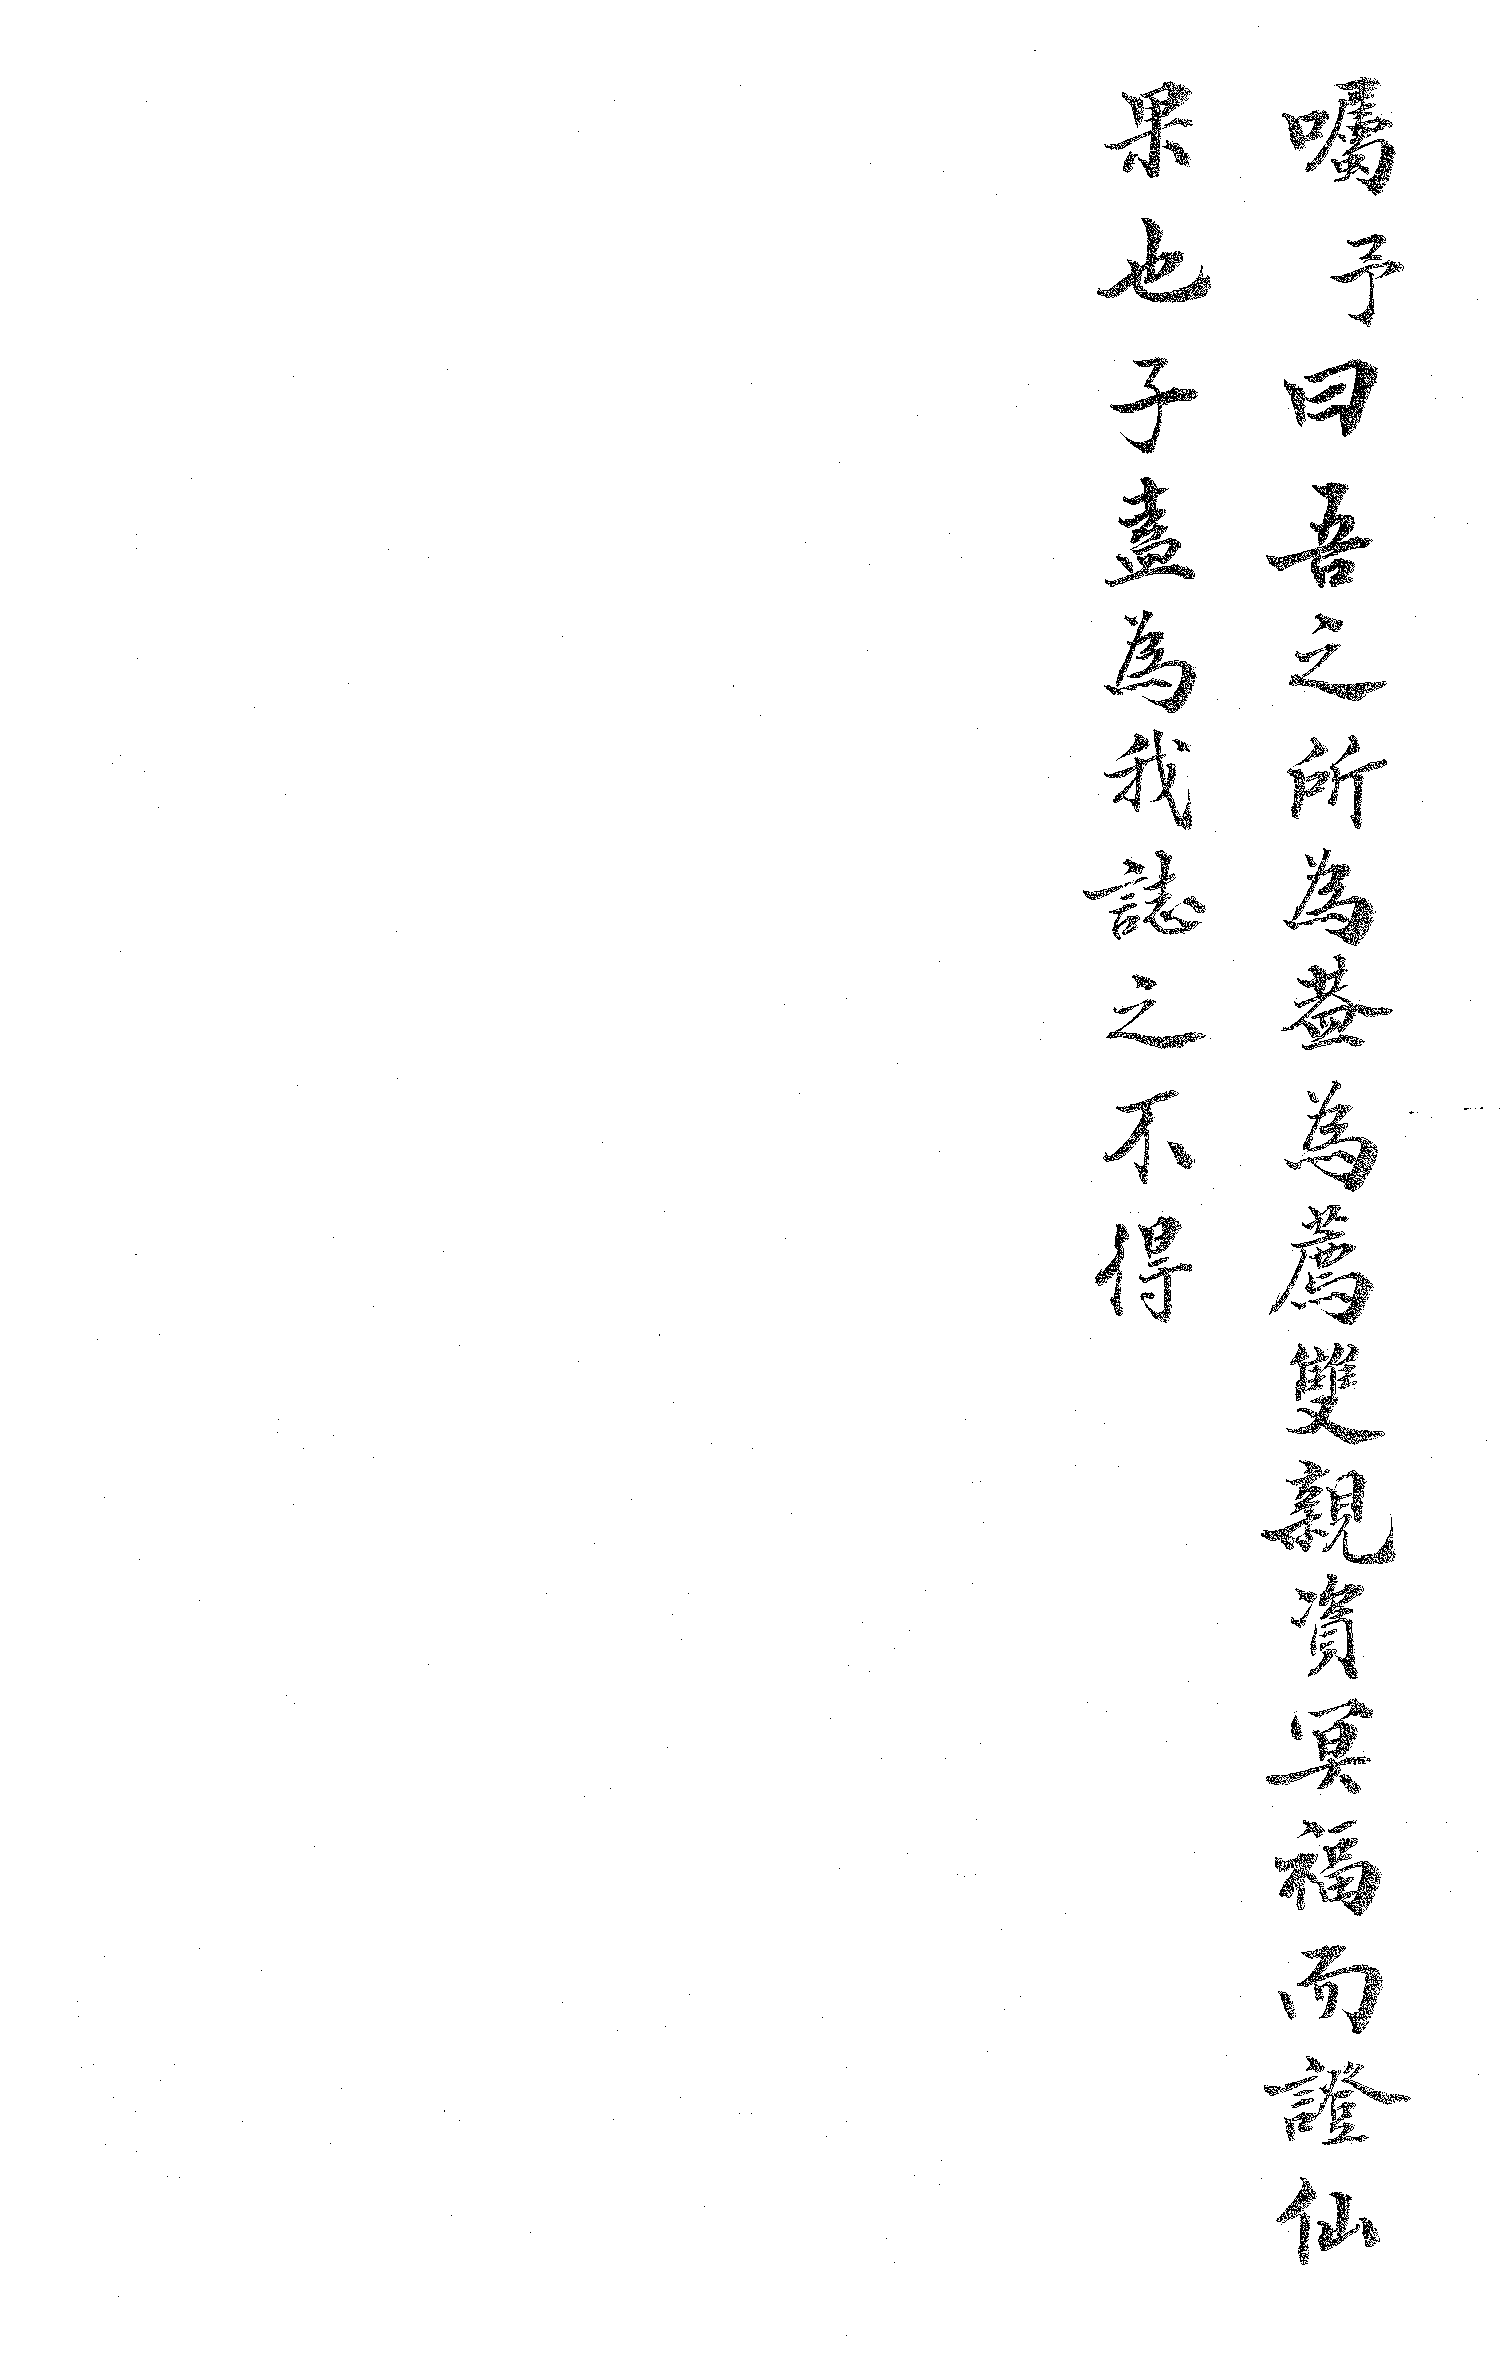 囑予曰吾之所為葢為薦雙親資冥福而證仙
果也子盍為我誌之不得